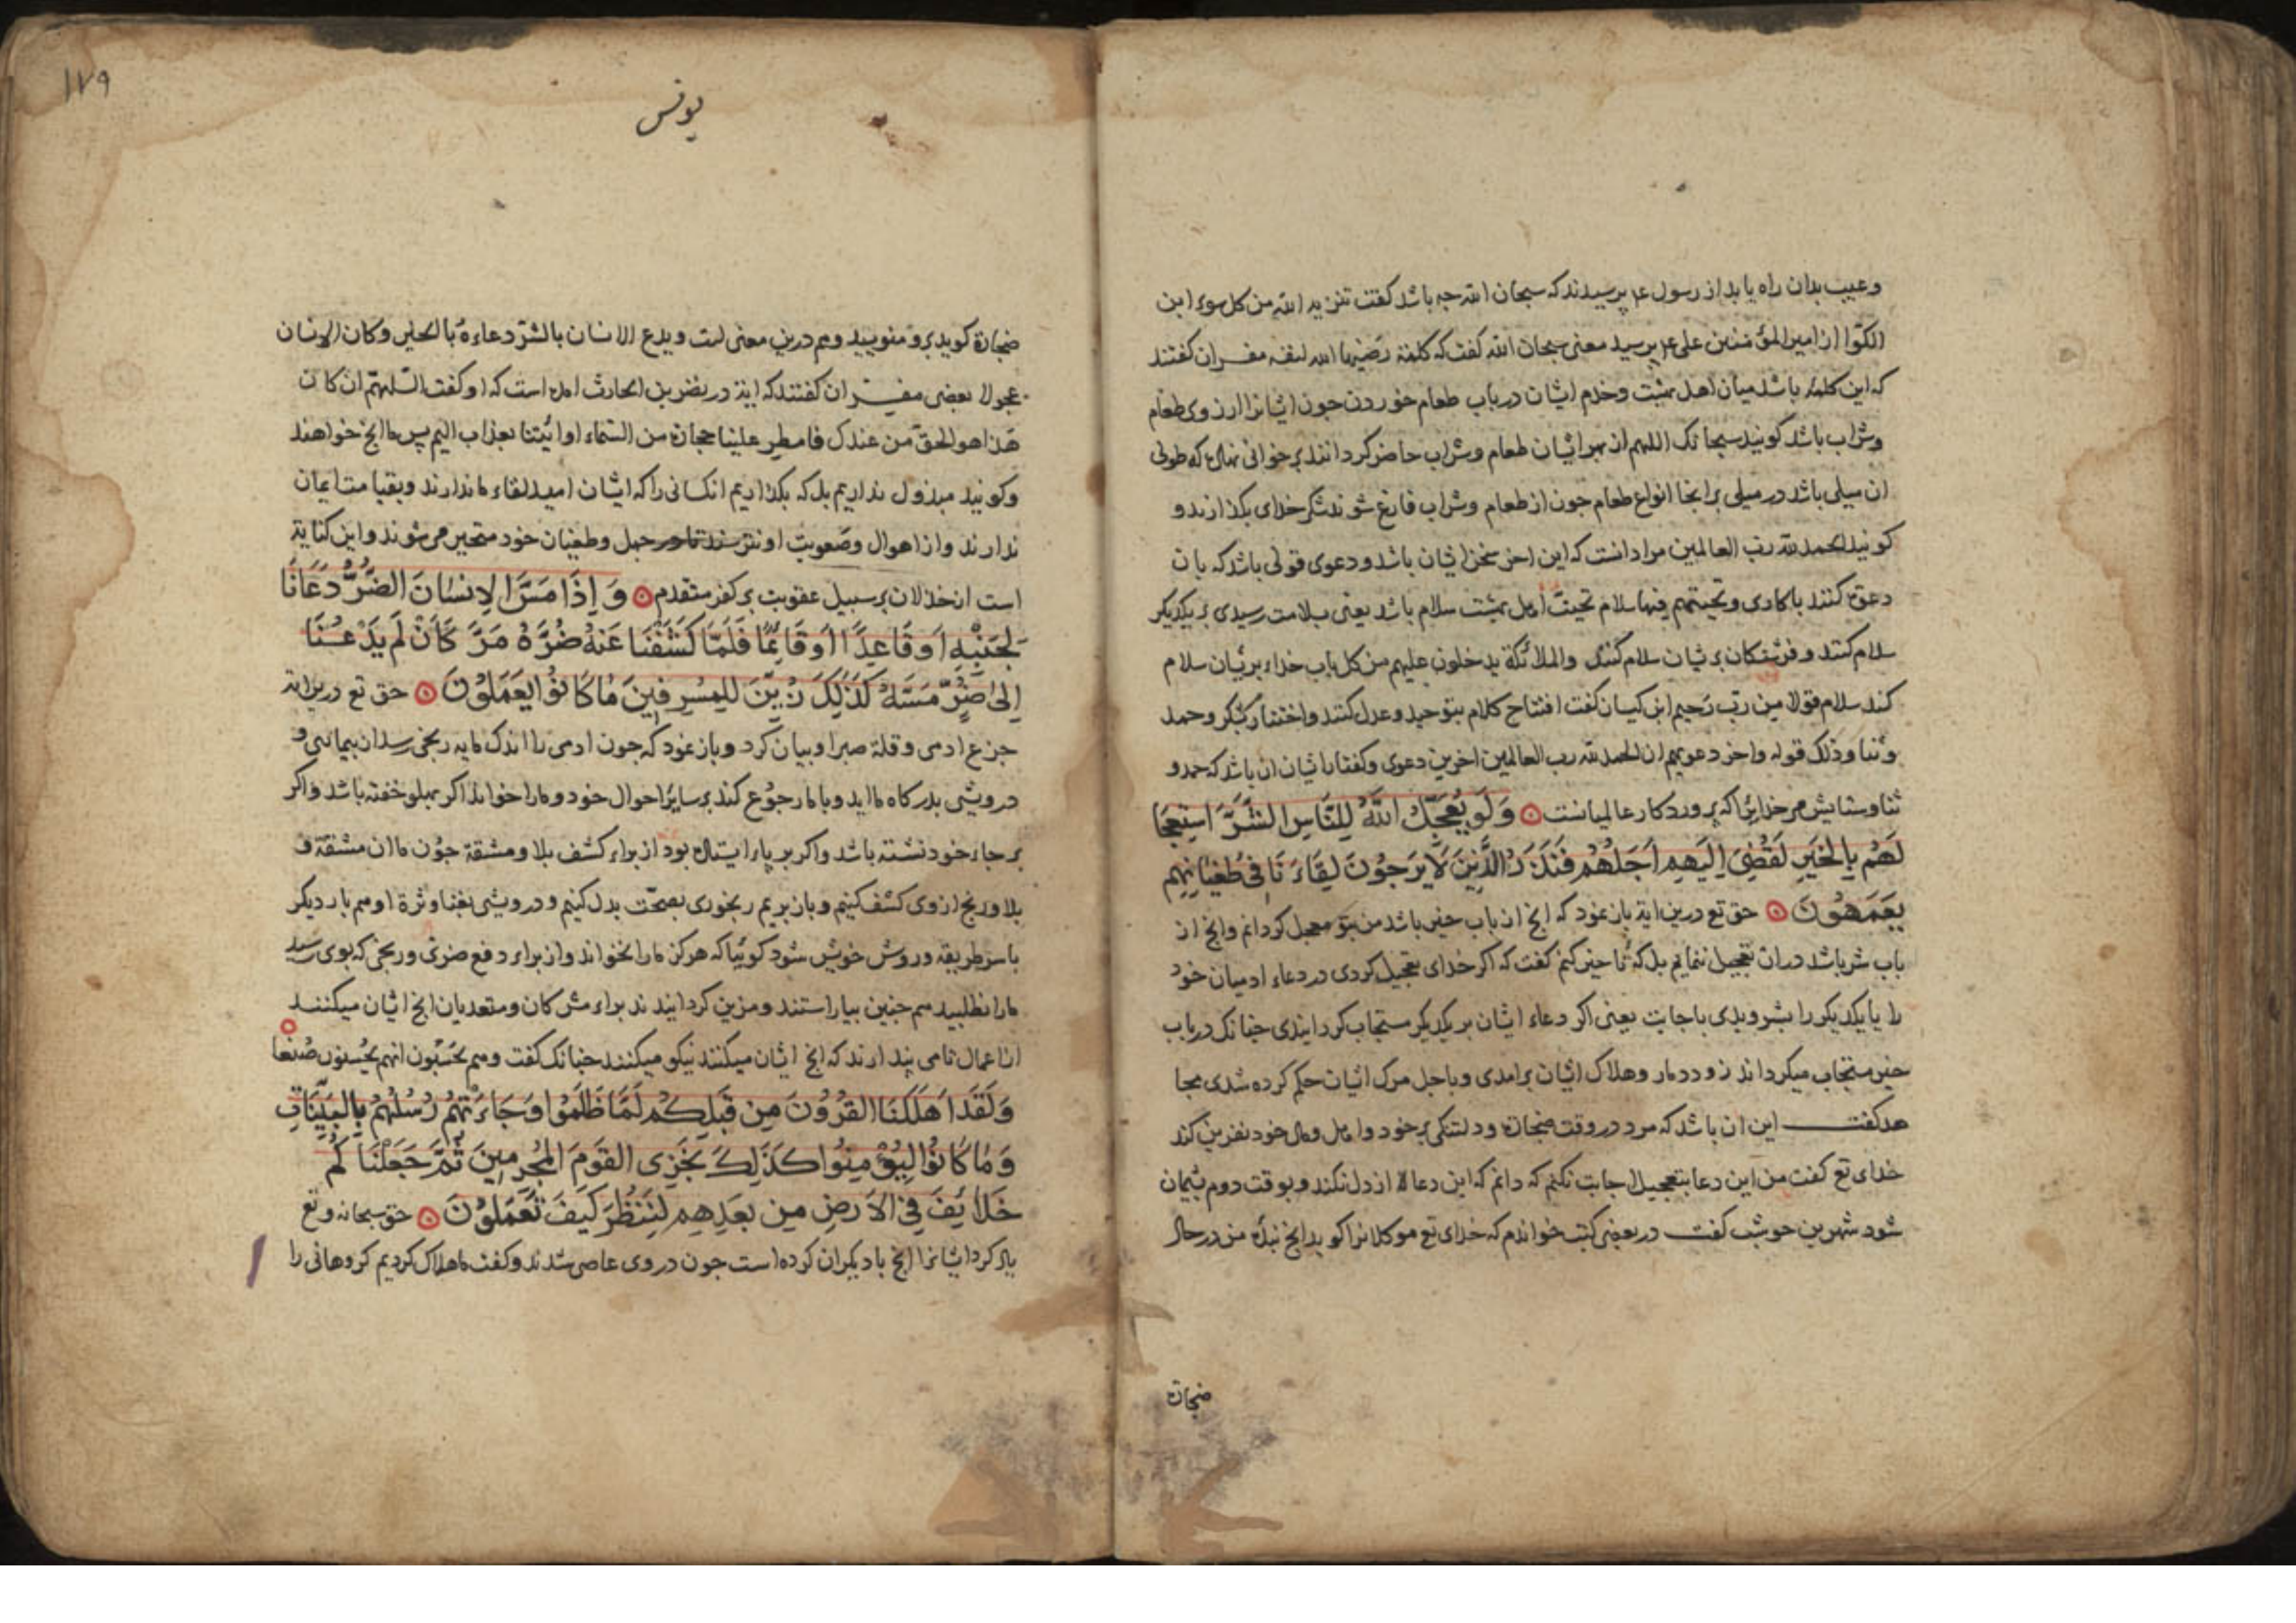 وعیب بدان راه یابد از رسول عم پرسیدند که سبحان الله جه باشد کفت تنزیه الله من کل سوء ابن
الکوّا از امیرالمؤمنین علی عم پرسید معنی سبحان الله کفت که کلمة رَضیها الله لنفسه مفسران کفتند
که این کلمه باشد میان اهل بهشت وخدم ایشان در باب طعام خوردن جون ایشانرا ارزوی طعام
وشراب باشد کویند سبحانک اللهم از بهر ایشان طعام وشراب حاضر کردانند بر خوانی نهاده که طول
ان میلی باشد در میلی برانجا انواع طعام جون از طعام وشراب فارغ شوند شکر خدای بکذارند و
کویند الحمد لله رب العالمین مراد انست که این اخر سخن ایشان باشد ودعوی قولی باشد که بان
دعوت کنند با کاری وتحیتهم فیها سلام تحیت اهل بهشت سلام باشد یعنی بسلامت رسیدی بر یکدیکر
سلام کنند و فرشتکان بریشان سلام کنند والملائکة یدخلون علیهم من کل باب خداء بریشان سلام
کند سلام قولا من رب رَحیم ابن کیسان کفت افتتاح کلام بتوحید وعدل کنند واختتام بشکر وحمد
وثنا وذلک قوله واخر دعویهم ان الحمد لله رب العالمین اخرین دعوی وکفتار ایشان ان باشد که حمد و
ثنا وستایش مر خدایرا که پروردکار عالمیانست وَلَو یُعَجِّلُ اللّٰهُ لِلنَّاسِ الشَّرَّ استِعجَا
لَهُم بِالخَیرِ لَقُضِیَ اِلَیهِم اَجَلُهُم فَنَذَرُ الَّذِینَ لَا یَرجُونَ لِقَاءَنَا فی طُغیَانِهِم
یَعمَهُونَ حق تع درین ایة باز نمود که انج از باب خیر باشد من بتو معجل کردانم وانج از
باب شر باشد دران تعجیل ننمایم بل که تاخیر کنم کفت که اکر خدای تعجیل کردی در دعاء ادمیان خود
را یا یکدیکر را بشر وبدی باجابت یعنی اکر دعاء ایشان بر یکدیکر مستجاب کردانیدی جنانک در باب
خیر مستجاب میکرداند زود دمار وهلاک ایشان برامدی وباجل مرک ایشان حکم کرده شدی مجا
هد کفت این ان باشد که مرد در وقت ضجارت ودلتنکی بر خود واهل ومال خود نفرین کند
خدای تع کفت من این دعا بتعجیل اجابت نکنم که دانم که این دعا از دل نکند وبوقت دوم پشیمان
شود شهر بن حوشب کفت در بعضی کتب خواندم که خدای تع موکلانرا کوید انج بنده من در حال
ضجارة
۱۷۹
یونس
ضجارة کوید برو منویسید وهم درین معنی است ویدع الانسان بالشرّ دعاءهُ بالخیر وکان الانسان
عجولا بعضی مفسران کفتند که ایة در نضر بن الحارث امده است که او کفت اللهمّ ان کان
هٰذا هو الحقّ من عندک فامطر علینا حجارة من السّماء او ائتنا بعذاب الیم پس ما انج خواهند
وکویند مبذول نداریم بل که بکذاریم انکسانی را که ایشان امید لقاء ما ندارند وبقیامت ایمان
ندارند واز اهوال وصعوبت او نترسند تا در جهل وطغیان خود متحیر می شوند واین کنایة
است از خذلان بر سبیل عقوبت بر کفر متقدم وَ اِذَا مَسَّ الاِنسَانَ الضُّرُّ دَعَانَا
لِجَنبِهٖ اَو قَاعِدًا اَو قَایِمًا فَلَمَّا کَشَفنَا عَنهُ ضُرَّهُ مَرَّ کَاَن لَم یَدعُنَا
اِلیٰ ضُرٍّ مَسَّهُ کَذٰلِکَ زُیِّنَ لِلمُسرِفِینَ مَا کَانُوا یَعمَلُونَ حق تع درین ایة
جزع ادمی وقلة صبر او بیان کرد وباز نمود که جون ادمی را اندک مایه رنجی رسد ان بیماریی و
درویشی بدرکاه ما اید وبا ما رجوُع کند بر سایر احوال خود وما را خواند اکر بپهلو خفته باشد واکر
بر جاء خود نشسته باشد واکر بر پاء ایستاده بود از براء کشف بلا ومشقة جون ما ان مشقة و
بلا ورنج از وی کشف کنیم وباز بریم رنجوری بصحّت بدل کنیم ودرویشی بغنا وثروة او هم بار دیکر
با سر طریقه وروش خویش شود کوئیا که هرکز ما را نخواند واز براء دفع ضرّی ورنجی که بوی رسید
ما را نطلبید هم جنین بیاراستند ومزین کردانیدند براء مشرکان ومتعدیان انج ایشان میکنند
از اعمال تا می پندارند که انج ایشان میکنند نیکو میکنند جنانک کفت وهم یحسبون انهم یُحسنون صُنعا
وَلَقَد اَهلَکنَا القُرُونَ مِن قَبلِکُم لَمَّا ظَلَمُوا وَجَاءَتهُم رُسُلُهُم بِالبَیِّنَاتِ
وَمَا کَانُوا لِیُؤمِنُوا کَذٰلِکَ نَجزِی القَومَ المُجرِمِینَ ثُمَّ جَعَلنَا کُم
خَلَایِفَ فِی الاَرضِ مِن بَعدِهِم لِنَنظُرَ کَیفَ تَعمَلُونَ حق سبحانه وتع
یاد کرد ایشانرا انج با دیکران کرده است جون در وی عاصی شدند وکفت ما هلاک کردیم کروهانی را